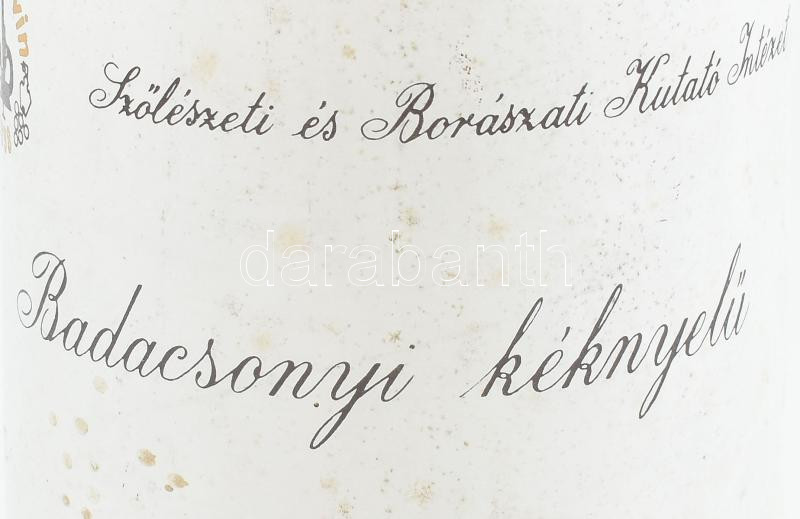 Szőlészeti és Borászati Kutató Intézet
darabanth
Badacsonyi kéknyelű